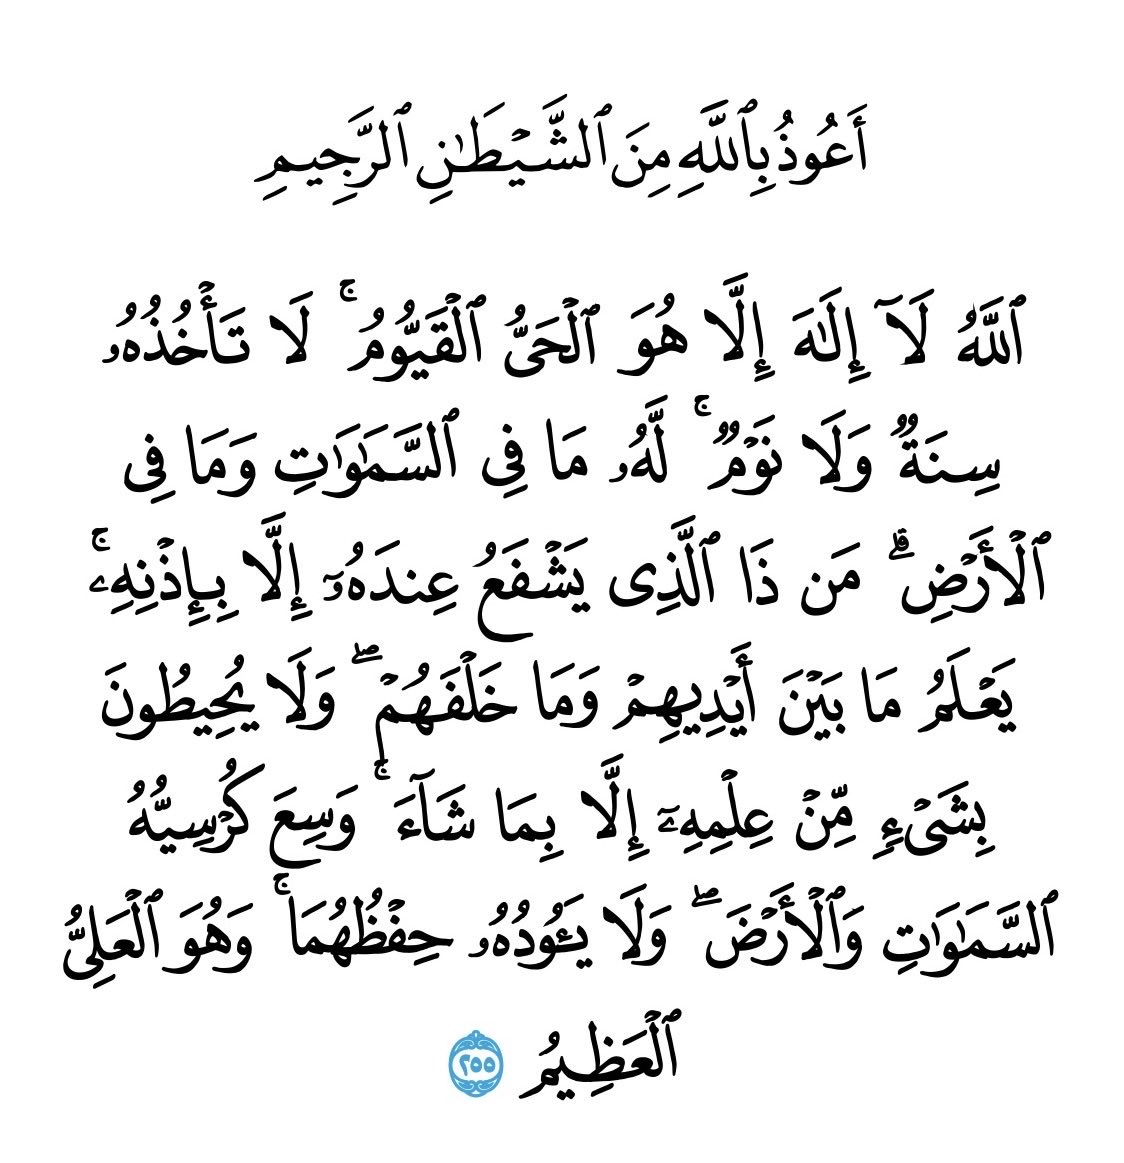 أَعُوذُ بِٱللَّهِ مِنَ ٱلشَّيْطَـٰنِ ٱلرَّجِيمِ
ٱللَّهُ لَآ إِلَـٰهَ إِلَّا هُوَ ٱلْحَىُّ ٱلْقَيُّومُ ۚ لَا تَأْخُذُهُۥ
سِنَةٌ وَلَا نَوْمٌ ۚ لَّهُۥ مَا فِى ٱلسَّمَـٰوَٰتِ وَمَا فِى
ٱلْأَرْضِ ۗ مَن ذَا ٱلَّذِى يَشْفَعُ عِندَهُۥٓ إِلَّا بِإِذْنِهِۦ ۚ
يَعْلَمُ مَا بَيْنَ أَيْدِيهِمْ وَمَا خَلْفَهُمْ ۖ وَلَا يُحِيطُونَ
بِشَىْءٍ مِّنْ عِلْمِهِۦٓ إِلَّا بِمَا شَآءَ ۚ وَسِعَ كُرْسِيُّهُ
ٱلسَّمَـٰوَٰتِ وَٱلْأَرْضَ ۖ وَلَا يَـُٔودُهُۥ حِفْظُهُمَا ۚ وَهُوَ ٱلْعَلِىُّ
ٱلْعَظِيمُ ٢٥٥